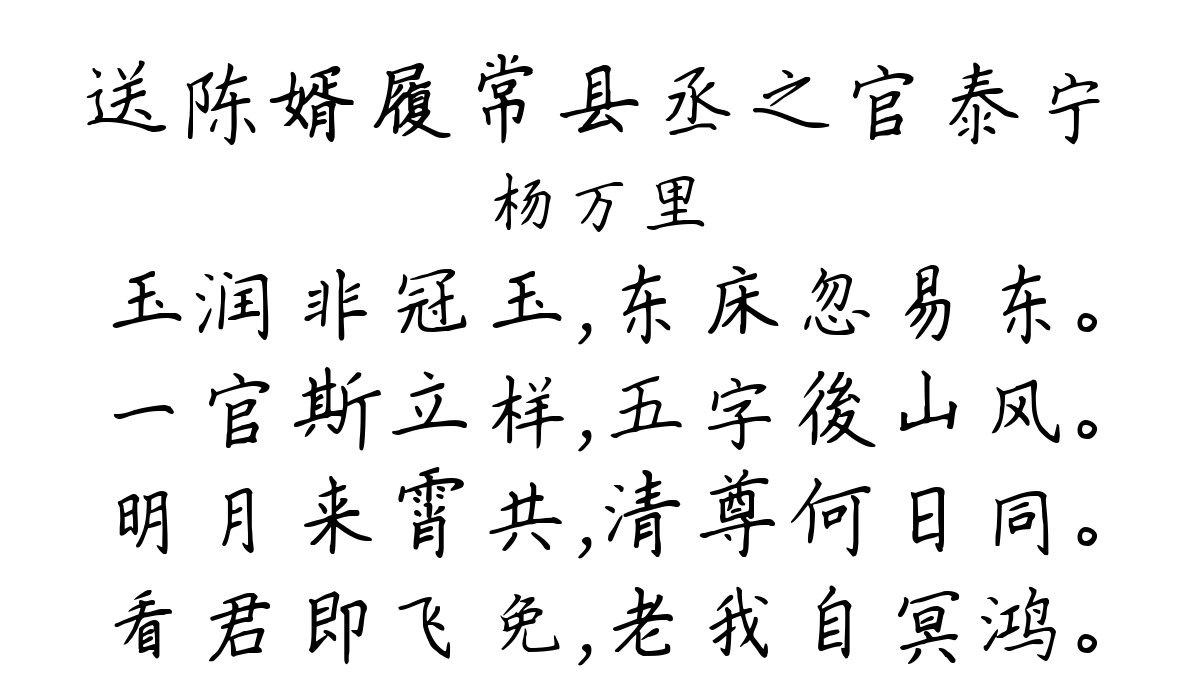 送陈婿履常县丞之官泰宁
杨万里
玉润非冠玉,东床忽易东。
一官斯立样,五字後山风。
明月来霄共,清尊何日同。
看君即飞免,老我自冥鸿。